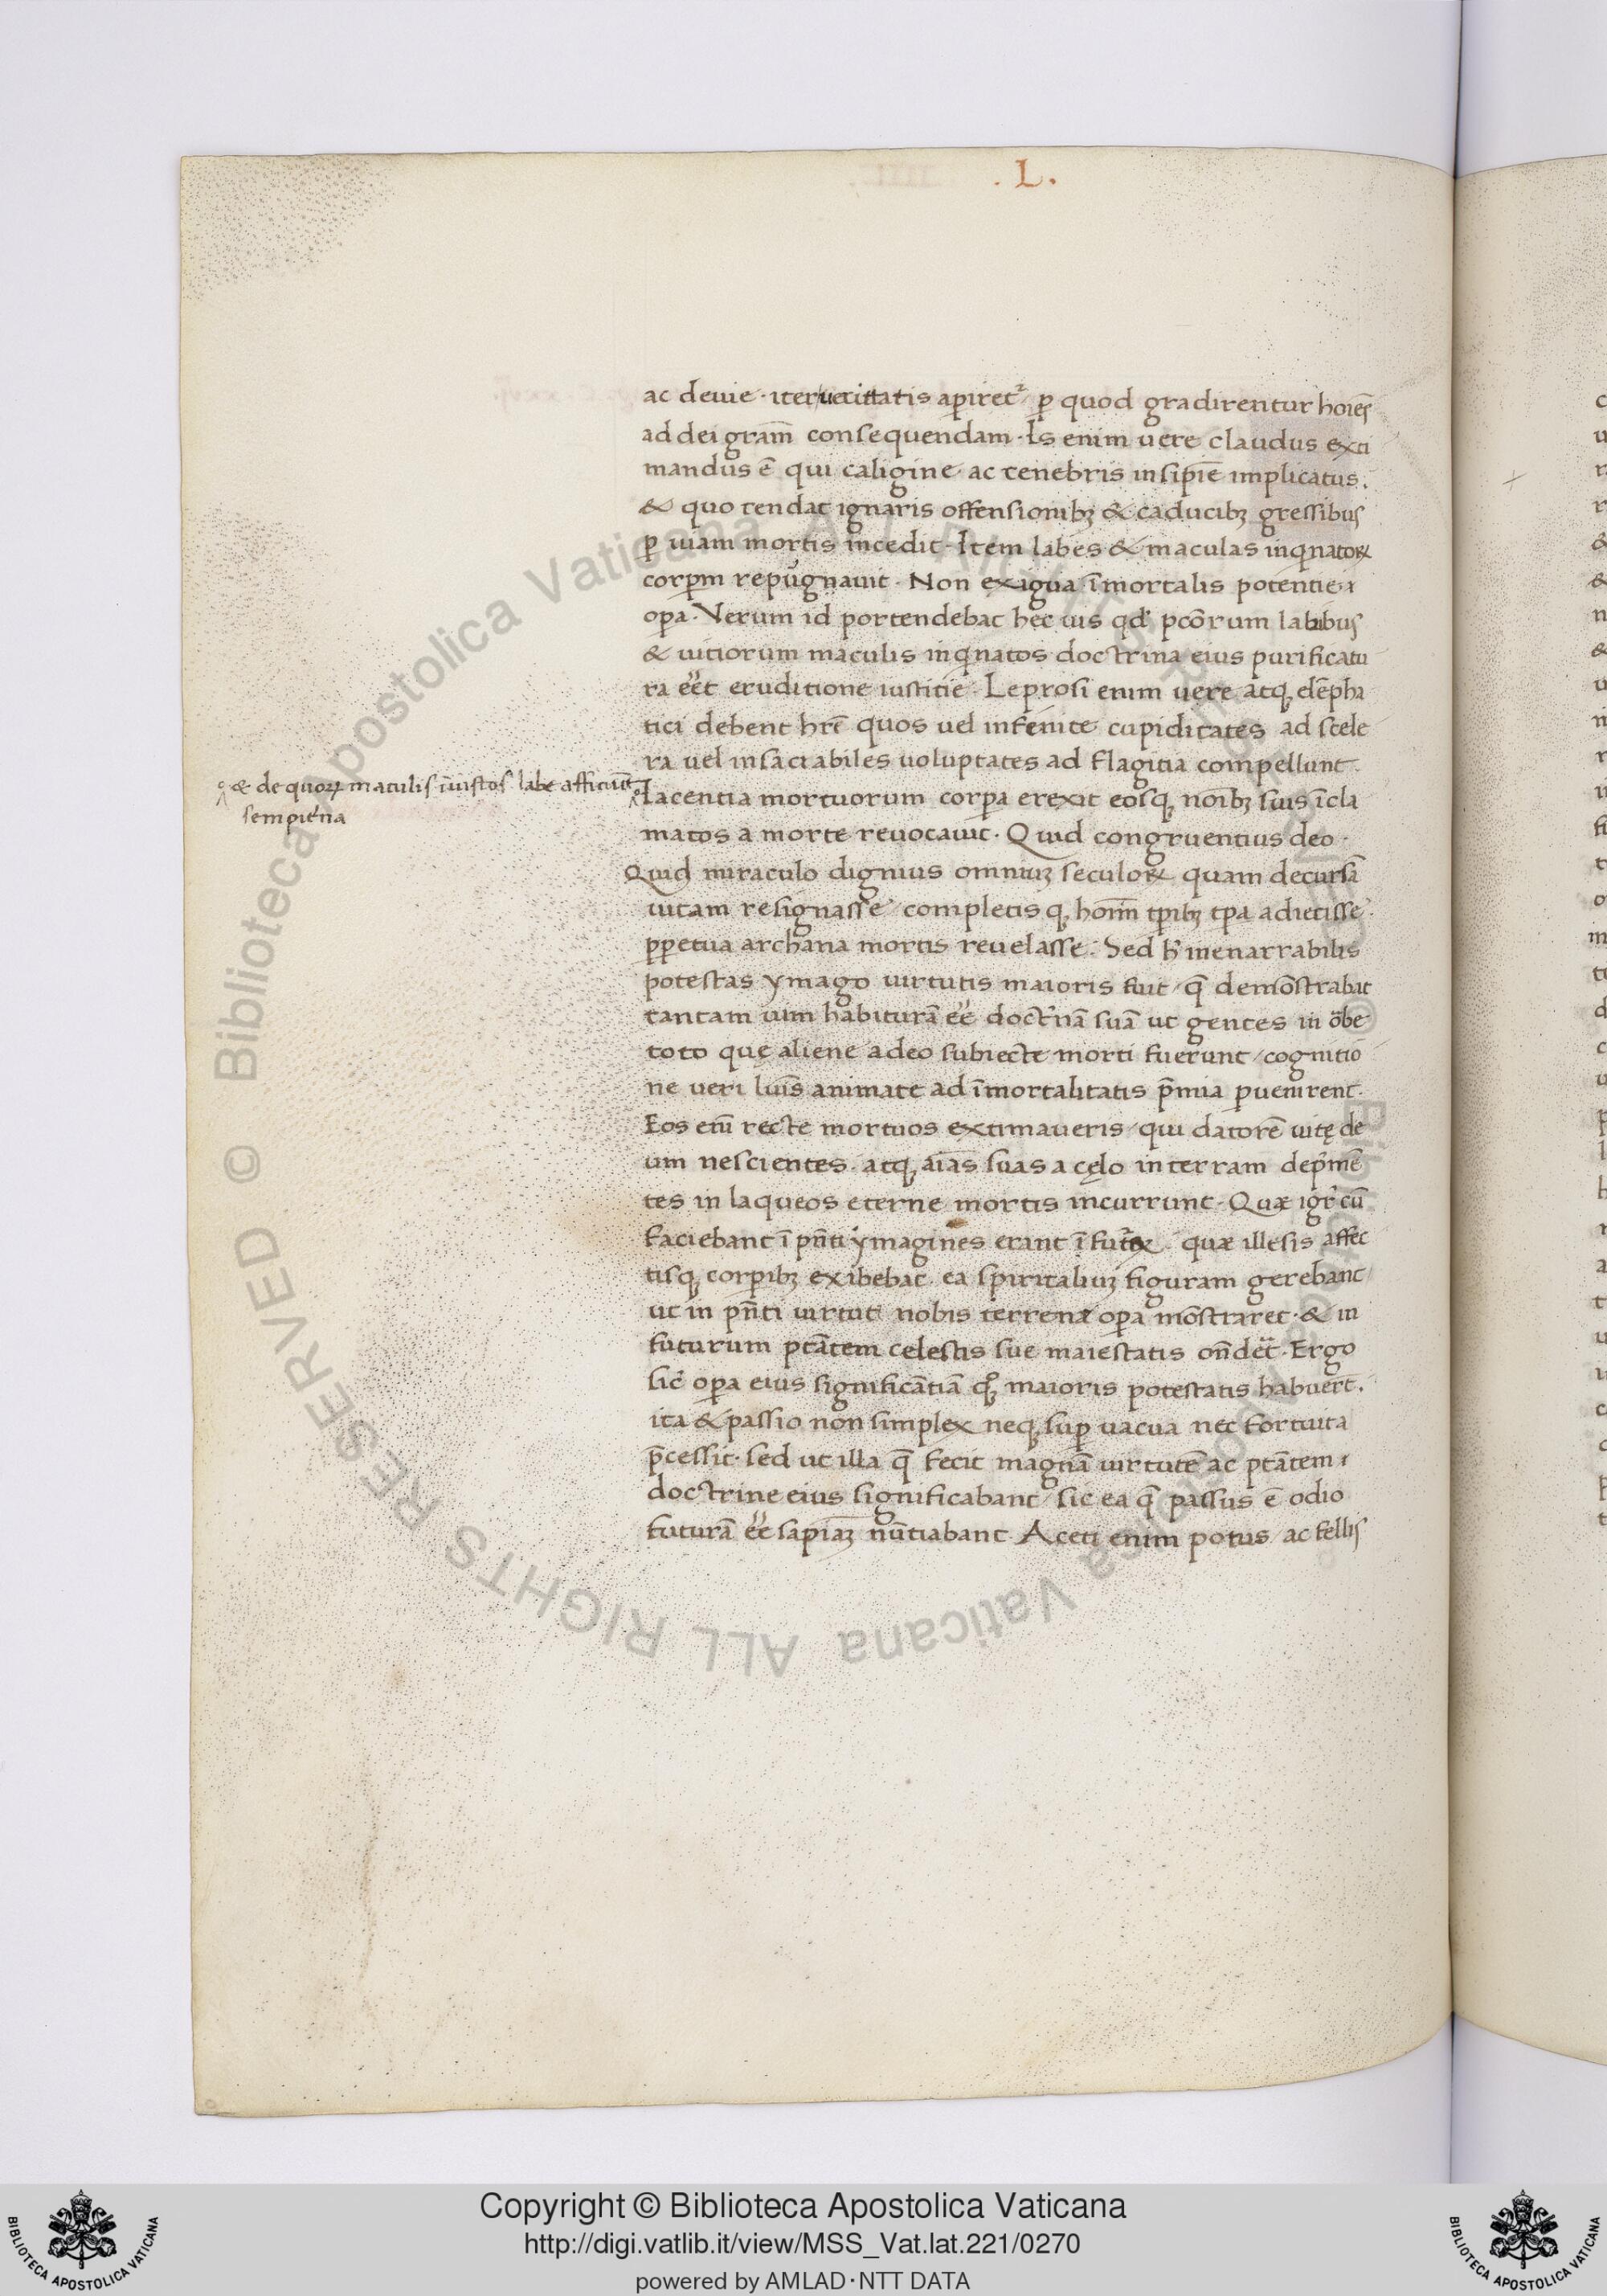 . L .
ac deuie · iter ueritatis aperiret᷑ / ꝑ quod gradirentur hoı̄es
ad dei gram̄ consequendam · Is enim uere claudus exti
mandus ē qui caligine · ac tenebris insipiē implicatus .
& quo tendat ignaris offensionibꝫ & caducibꝫ gressibus
ꝑ uiam mortis incedit · Item labes & maculas inq̇natoꝝ
corꝑm repugnauit · Non exigua īmortalis potentie ·
oꝑa · Verum id portendebat hec uis qd̓ pcōrum labibus
& uitiorum maculis inq̇natos doctrina eius purificatu
ra eēt eruditione iustitie · Leprosi enim uere atqꝫ elēpha
tici debent hrē quos uel infenite cupiditates ad scele
ra uel insatiabiles uoluptates ad flagitia compellunt ·
& de quoꝝ maculis iniustos labe afficiūt
sempit̓na
Iacentia mortuorum corꝑa erexit eosqꝫ noı̄bꝫ suis īcla
matos a morte reuocauit · Quid congruentius deo ·
Quid miraculo dignius omniuꝫ seculoꝝ quam decursā
uitam resignasse / completis qꝫ hom̄ tꝑibꝫ tꝑa adiecisse ·
ꝑpetua archana mortis reuelasse · Sed h̓ inenarrabilis
potestas ymago uirtutis maioris fuit / q̄ demōstrabat
tantam uim habiturā eē doct̓nā suā ut gentes in orbe
toto que aliene adeo subiecte morti fuerunt / cognitio
ne ueri luı̄s animate ad īmortalitatis p̄mia ꝑuenirent ·
Eos eni̅ recte mortuos extimaueris / qui datorē uitę de
um nescientes · atqꝫ aı̄as suas a cęlo in terram dep̓mē
tes in laqueos eterne mortis incurrunt · Quæ igr̓ cū
faciebant ī pn̄ti ymagines erant ī futuroꝝ · quæ illesis affec
tisqꝫ corꝑibꝫ exibebat · ea spiritaliuꝫ figuram gerebant /
ut in pn̄ti uirtut nobis terrenæ oꝑa mōstraret · & in
futurum ptātem celestis sue maiestatis on̄deēt · Ergo
sic̓ oꝑa eius significātiā qꝫ maioris potestatis habuert̄ .
ita & passio non simplex neqꝫ suꝑ uacua nec fortuita
p̄cessit · sed ut illa q̄ fecit magnā uirtutē ac ptātem ·
doctrine eius significabant / sic ea q̄ passus ē odio
futurā eē sapiaꝫ nūtiabant · Aceti enim potus / ac fellis
Copyright © Biblioteca Apostolica Vaticana
http://digi.vatlib.it/view/MSS_Vat.lat.221/0270
powered by AMLAD · NTT DATA